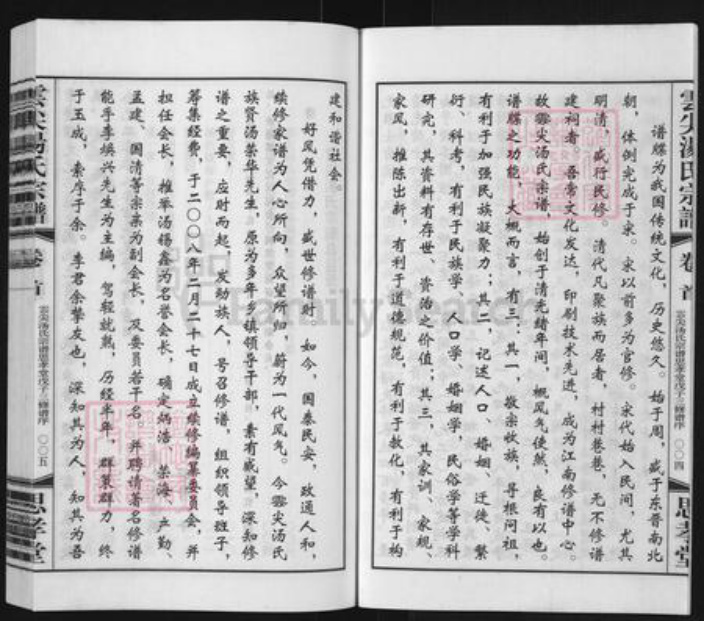 雲尖湯氏宗譜
卷首
雲尖汤氏宗谱思孝堂戊子三修谱序
〇〇四
思孝堂
谱牒为我国传统文化，历史悠久。始于周，盛于东晋南北
朝，体例完成于宋。宋以前多为官修。宋代始入民间，尤其
明清，盛行民修。清代凡聚族而居者，村村巷巷，无不修谱
建祠者。吾常文化发达，印刷技术先进，成为江南修谱中心。
故雲尖汤氏宗谱，始创于清光绪年间，概风气使然，良有以也。
谱牒之功能，大概而言，有三：其一，敬宗收族，寻根问祖，
有利于加强民族凝聚力；其二，记述人口、婚姻、迁徙、繁
衍、科考，有利于民族学、人口学、婚姻学，民俗学等学科
研究，其资料有存世、资治之价值；其三，其家训、家规、
家风，推陈出新，有利于道德规范，有利于教化，有利于构
建和谐社会。
好风凭借力，盛世修谱时。如今，国泰民安，政通人和，
续修家谱为人心所向，众望所归，蔚为一代风气。今雲尖汤氏
族贤汤荣华先生，原为多年乡镇领导干部，素有威望，深知修
谱之重要，应时而起，发动族人，号召修谱，组织领导班子，
筹集经费，于二〇〇八年二月二十七日成立续修编纂委员会，并
担任会长，推举汤锡鑫为名誉会长，确定炳浩、荣海、产勤、
孟建、国清等宗亲为副会长，及委员若干名。并聘请著名修谱
能手李焕兴先生为主编，驾轻就熟，历经半年，群策群力，终
于玉成，索序于余。李君余挚友也，深知其为人，知其为吾
雲尖湯氏宗譜
卷首
雲尖汤氏宗谱思孝堂戊子三修谱序
〇〇五
思孝堂
FamilySearch